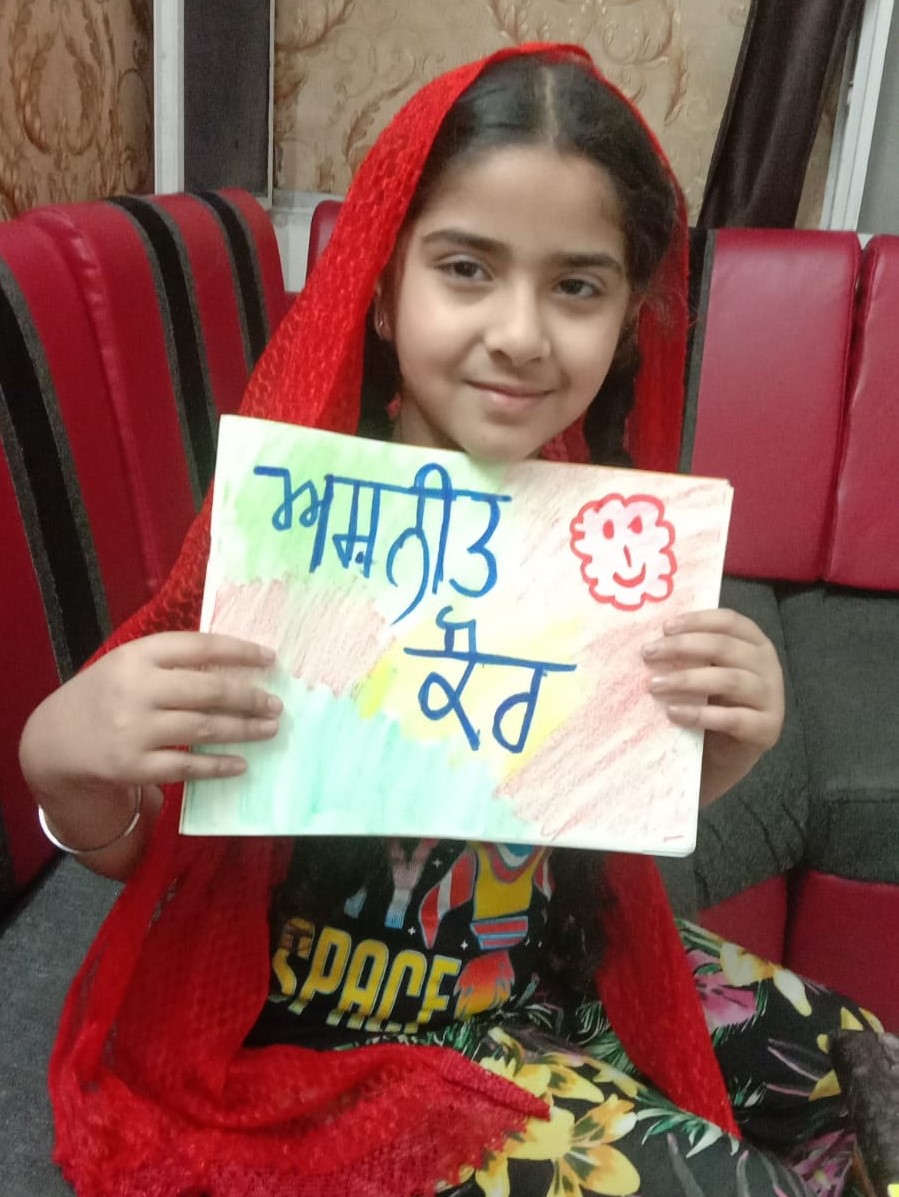 ਅਸ਼ਨੀਤ
ਕੌਰ
SPACE